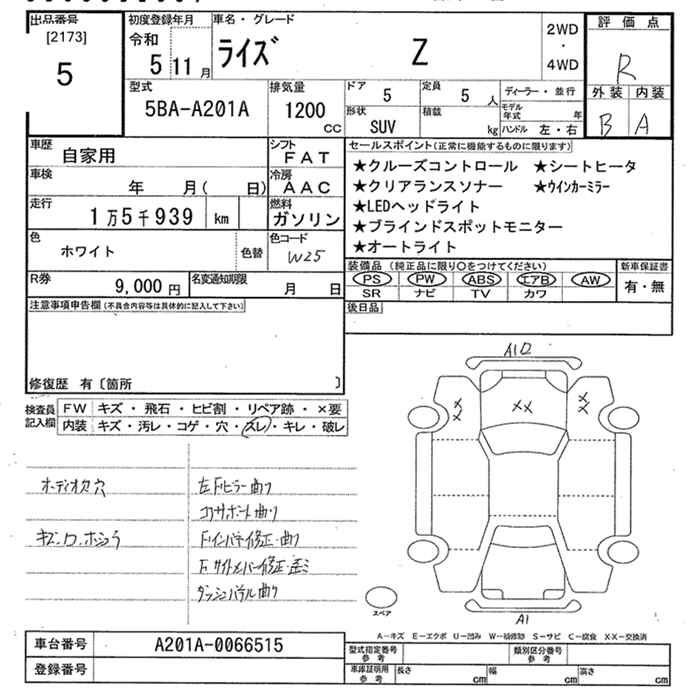 出品番号
[2173]
5
初度登録年月
令和
5 11 月
車名・グレード
ライズ Z
2WD
・
4WD
評価点
R
外装 内装
B A
型式
5BA-A201A
排気量
1200
CC
ドア
5
定員
5 人
形状
SUV
積載
kg
ディーラー・並行
モデル年式 年
ハンドル 左・右
車歴
自家用
シフト
FAT
車検
年 月( 日)
冷房
AAC
走行
1万5千939 km
燃料
ガソリン
色
ホワイト
色替
色コード
W25
R券
9,000円
名変通知期限
月 日
セールスポイント(正常に機能するものに限ります)
★クルーズコントロール ★シートヒータ
★クリアランスソナー ★ウインカーミラー
★LEDヘッドライト
★ブラインドスポットモニター
★オートライト
装備品(純正品に限り○をつけてください)
PS PW ABS エアB AW
SR ナビ TV カワ
新車保証書
有・無
後日品
注意事項申告欄(不具合内容等は具体的に記入して下さい)
修復歴 有〔箇所 〕
検査員記入欄
FW キズ・飛石・ヒビ割・リペア跡・×要
内装 キズ・汚レ・コゲ・穴・スレ・キレ・破レ
オーディオ穴
左Fピラー曲り
コアサポート曲り
Fインパネ修正・曲り
ダッシュパネル曲り
A1
XX
XX
XX
A1
スペア
A-キズ E-エクボ U-凹み W-補修跡 S-サビ C-腐食 XX-交換済
車台番号
A201A-0066515
登録番号
型式指定番号
参考
類別区分番号
参考
車庫証明用
参考
長さ cm
幅 cm
高さ cm